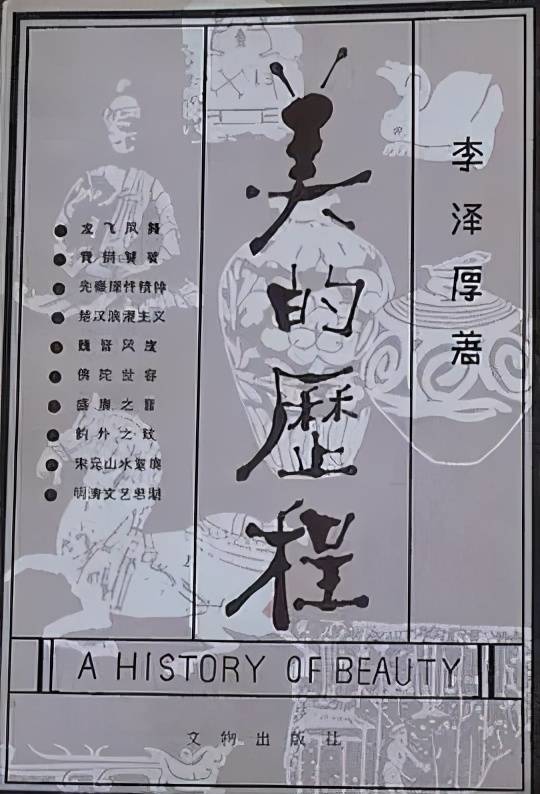 美的歷程
李泽厚著
龙飞凤舞
青铜饕餮
先秦理性精神
楚汉浪漫主义
魏晋风度
佛陀世容
盛唐之音
韵外之致
宋元山水意境
明清文艺思潮
A HISTORY OF BEAUTY
文物出版社